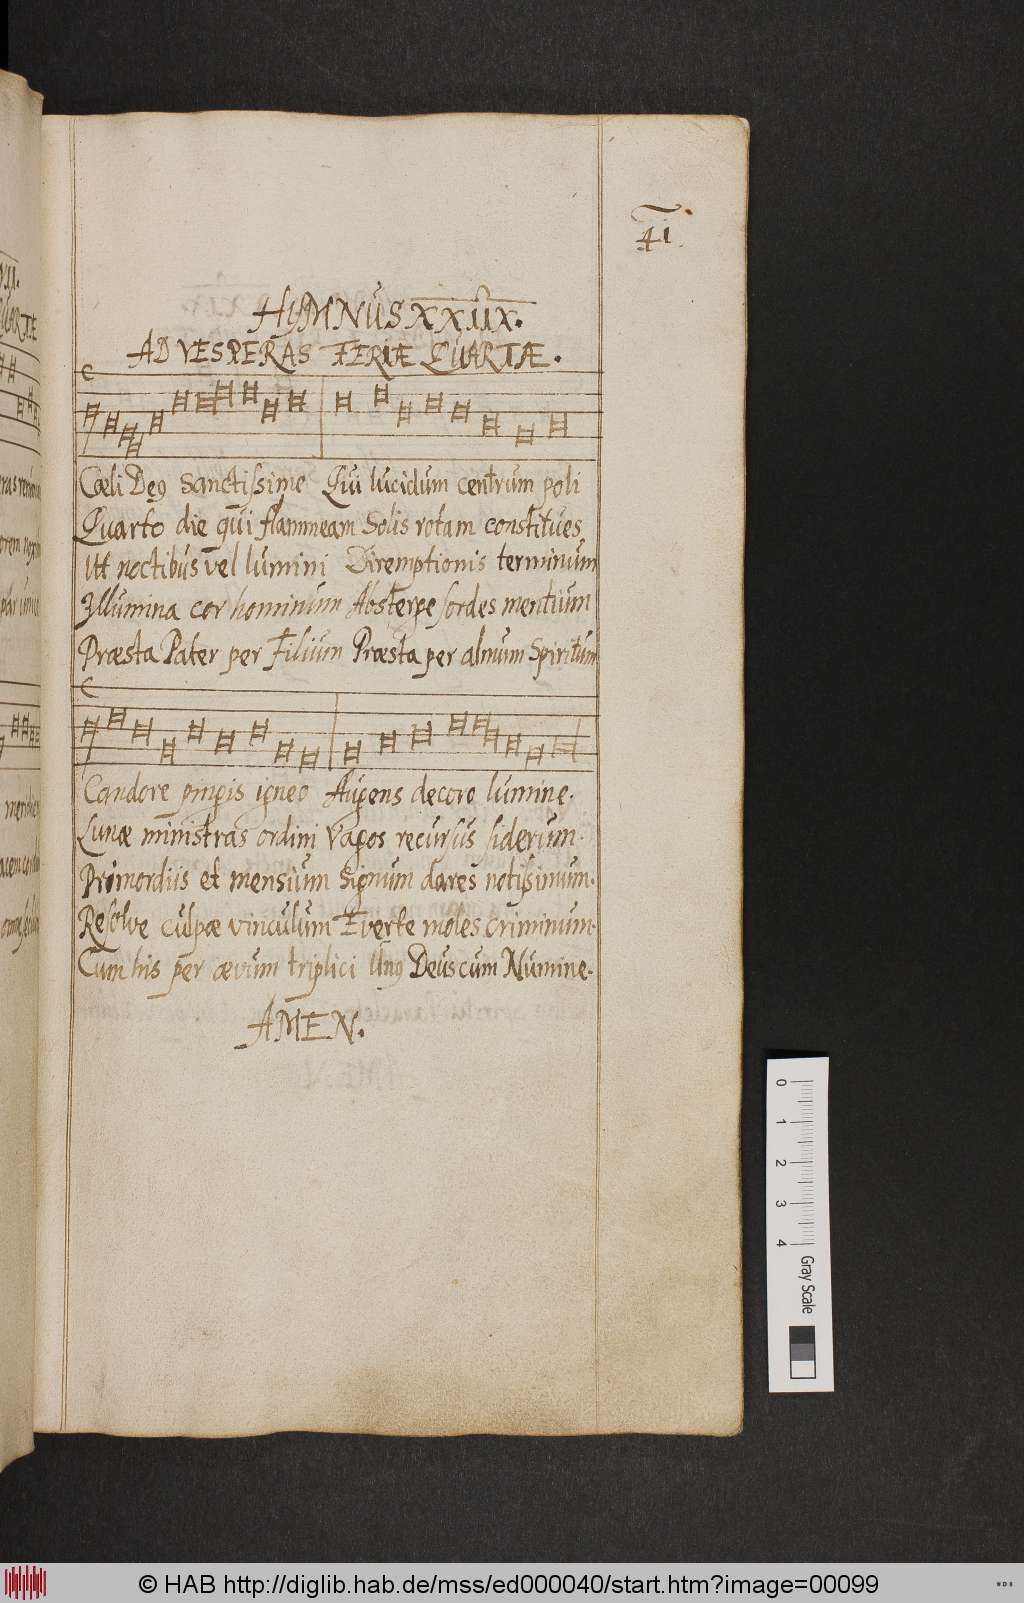 41.
HYMNUS XXIIX.
AD VESPERAS FERIÆ QUARTÆ.
C
Cœli Deꝰ sanctissime Qui lucidum centrum poli
Quarto die qui flammeam Solis rotam constitues
Ut noctibus vel lumini Diremptionis terminum
Illumina cor hominum Absterge sordes mentium
Præsta Pater per Filium Præsta per almum Spiritum
C
Candore pingis igneo Augens decoro lumine.
Lunæ ministras ordini Vagos recursus siderum.
Primordiis et mensium Signum dares notissimum.
Resolve culpæ vinculum Everte moles criminum.
Cum his per ævum triplici Unꝰ Deus cum Numine.
AMEN.
0 1 2 3 4 Gray Scale
© HAB http://diglib.hab.de/mss/ed000040/start.htm?image=00099